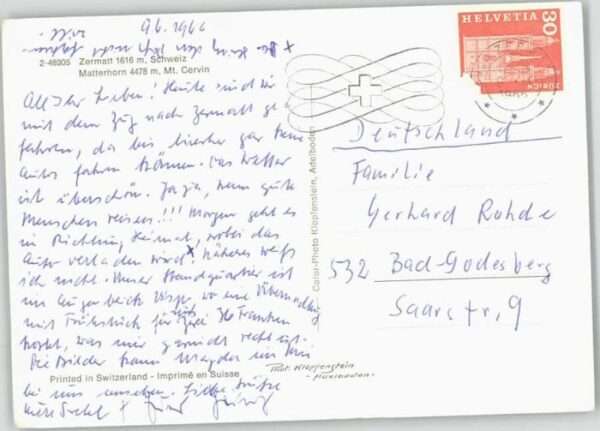 9.6.1966
2-48205 Zermatt 1616 m, Schweiz
Matterhorn 4478 m, Mt. Cervin
All Ihr Lieben! Heute sind wir
mit dem Zug nach Zermatt ge-
fahren, da bis hierher gar keine
Autos fahren können. Das Wetter
ist überschön. Ja ja, wenn gute
Menschen reisen!!! Morgen geht es
in Richtung Heimat, wobei das
Auto verladen wird. Näheres weiß
ich nicht. Unser Standquartier ist
wo eine Übernachtung
mit Frühstück für zwei Franken
kostet, was mir
Die Bilder kann
bei uns ansehen. Liebe Grüße
Printed in Switzerland - Imprimé en Suisse
Color-Photo Klopfenstein, Adelboden
Phot. Klopfenstein
Adelboden.
HELVETIA
30
ZÜRICH
Deutschland
Familie
Gerhard Rohde
532 Bad-Godesberg
Saarstr. 9